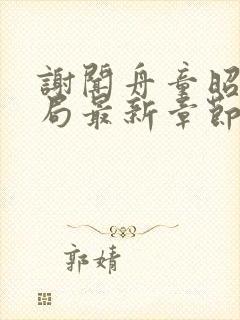 謝聞舟童昭
局最新章節
郭婧